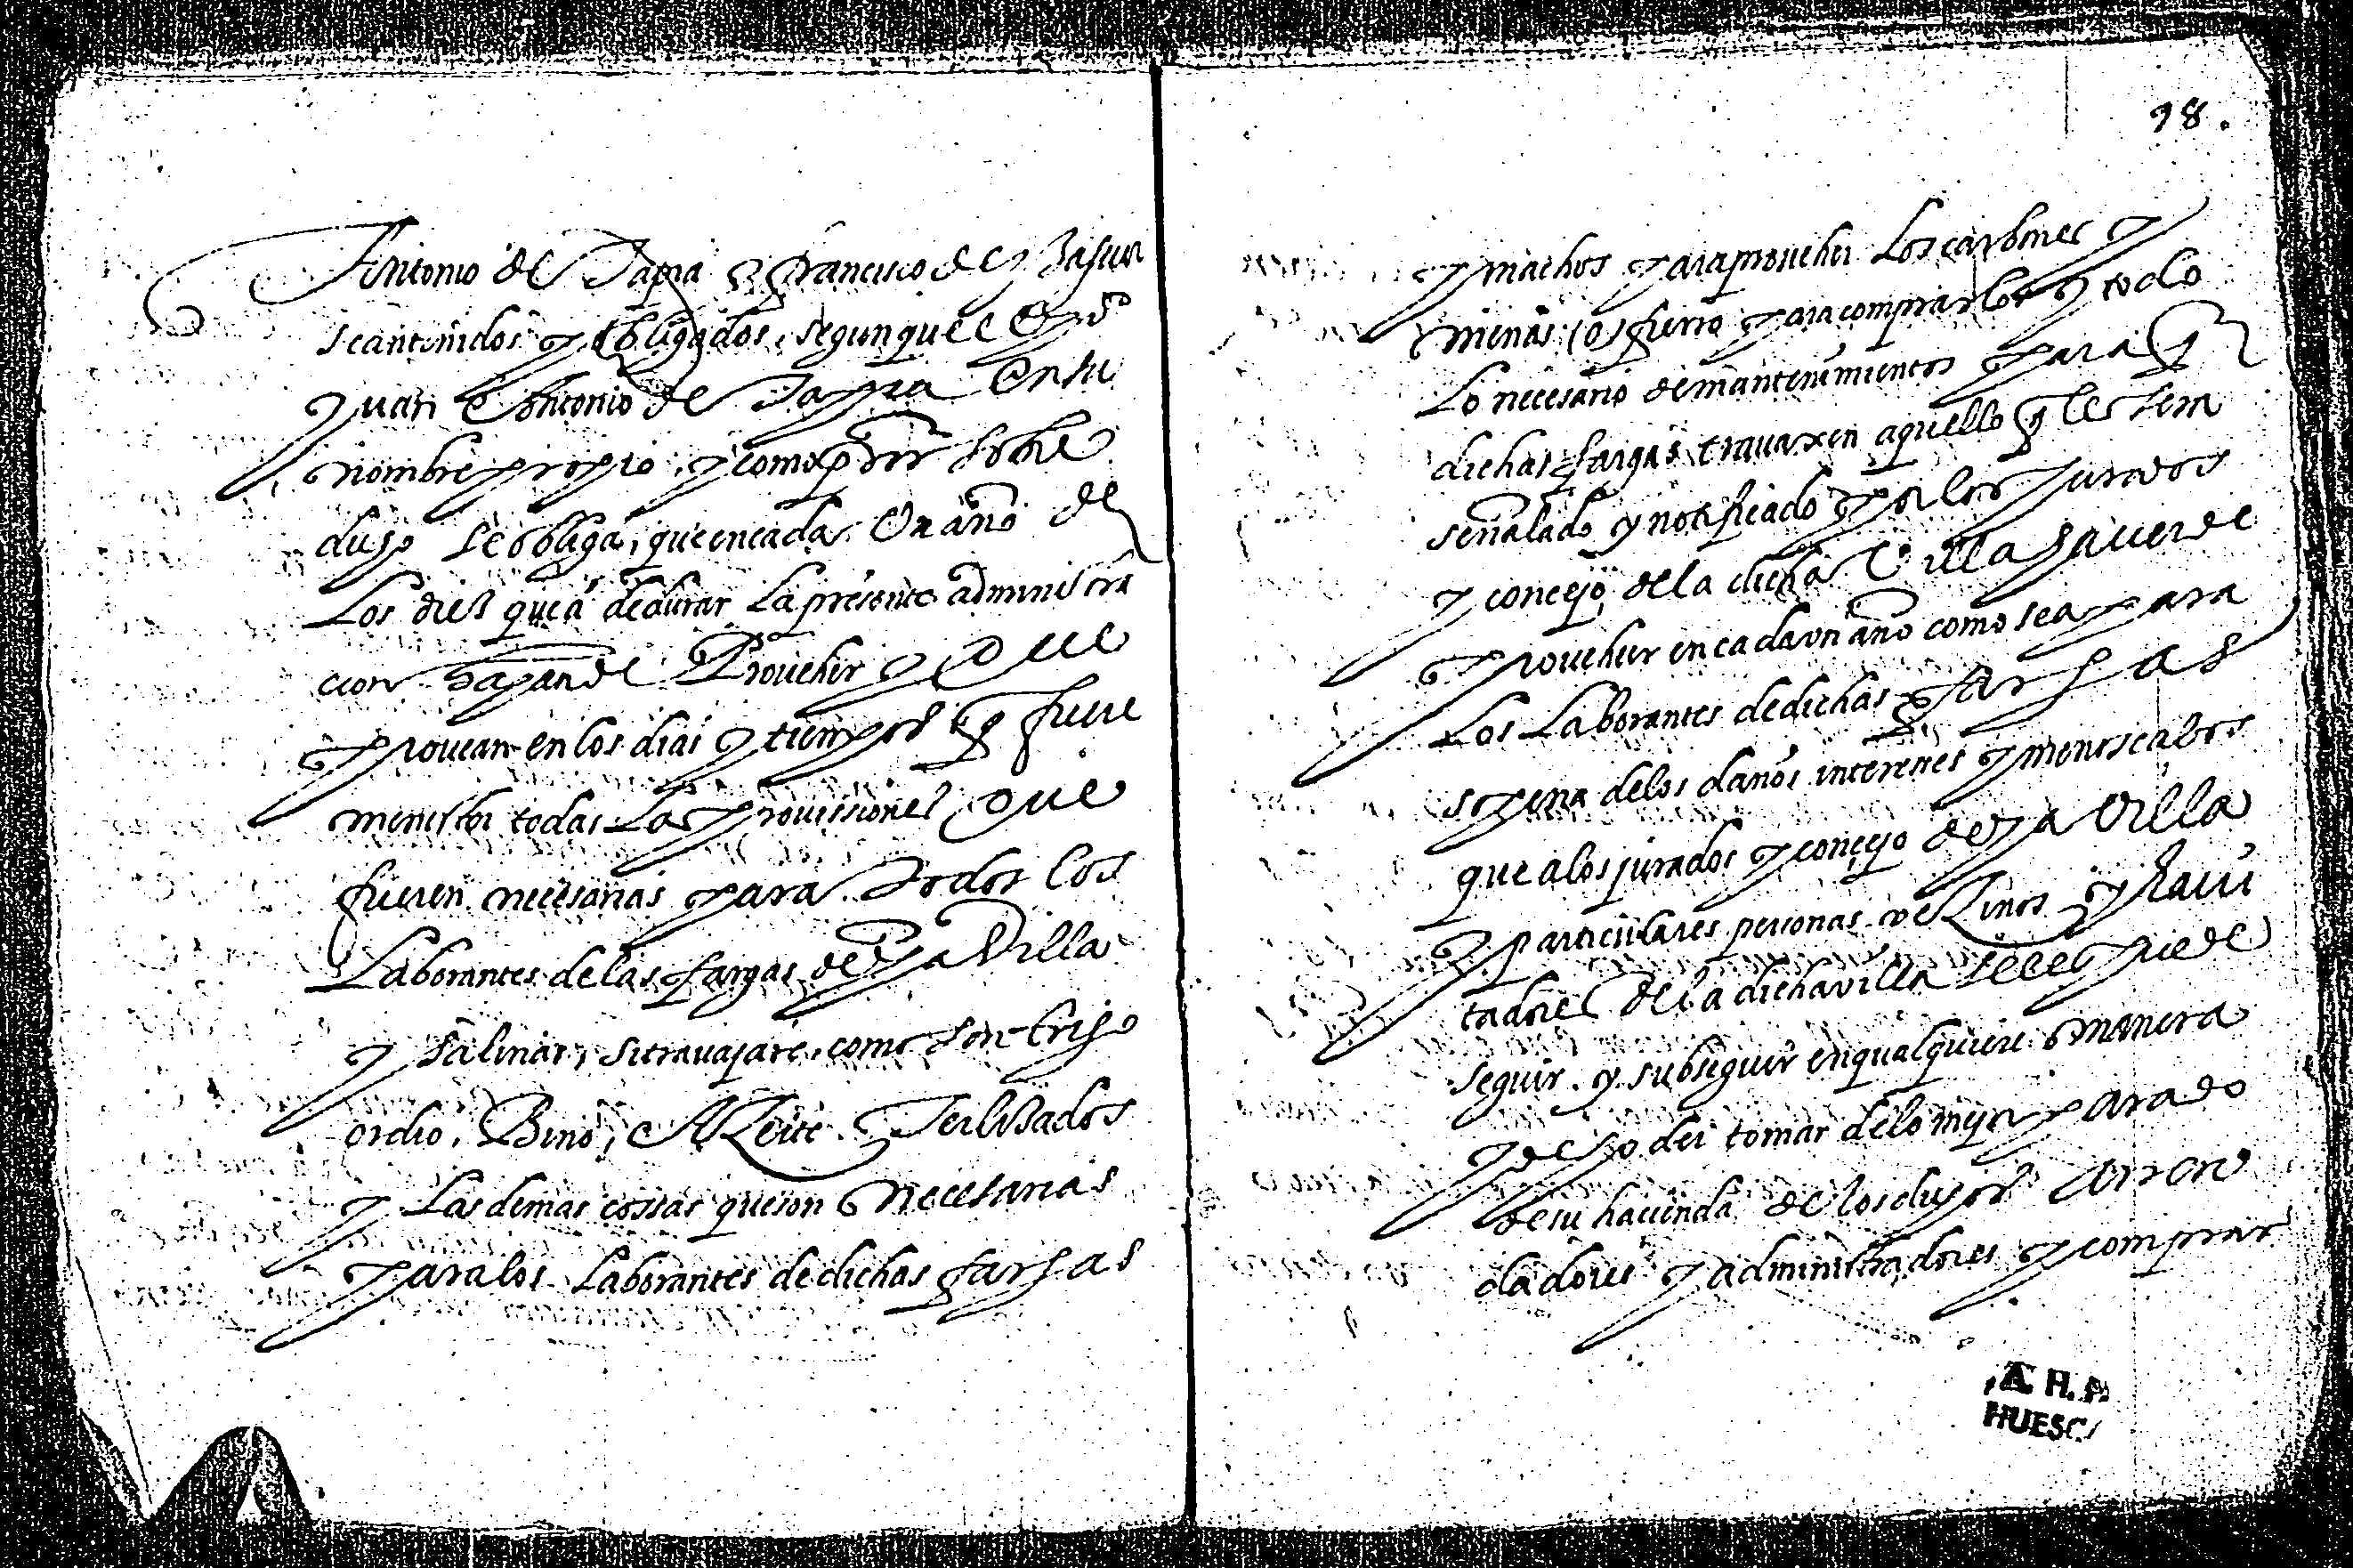 Antonio de Tapia y Francisco de
s can tenidos y obligados, segun que el
Juan Antonio de Tapia en su
nombre propio, y como sobre
dijo se obliga, que en cada Un año de
Los diez que a de durar La presente administra
cion hayan de Proueher y Que
prouean en los dias y tiempos q̃ fuere
menester todas Las prouissiones que
fueren necesarias para todos los
Laborantes de las fargas de Villa
y salinas, si trauajare, como son trigo
ordio, Bino, AZeite
y Las demas cossas que son necesarias
para los Laborantes de dichas fargas
98.
y machos para proueher Los carbones y
menas (o) fierro para comprarlos y todo
Lo necesario de mantenimientos para q̃
dichas fargas trauaxen aquello q̃ les sera
señalado y notificado por los Jurados
y concejo de la dicha Villa hauer de
proueher en cada un año como sea para
Los Laborantes de dichas fargas
so pena de los daños intereses y menoscabos
que a los jurados y concejo de Villa
y particulares personas veZinos y haui
tadores de la dicha villa se les puede
seguir y subseguir en qualquiere manera
y de poder tomar de lo mejor parado
de su hacienda de los dichos arren
dadores y administradores y comprar
A. H. P.
HUESCA